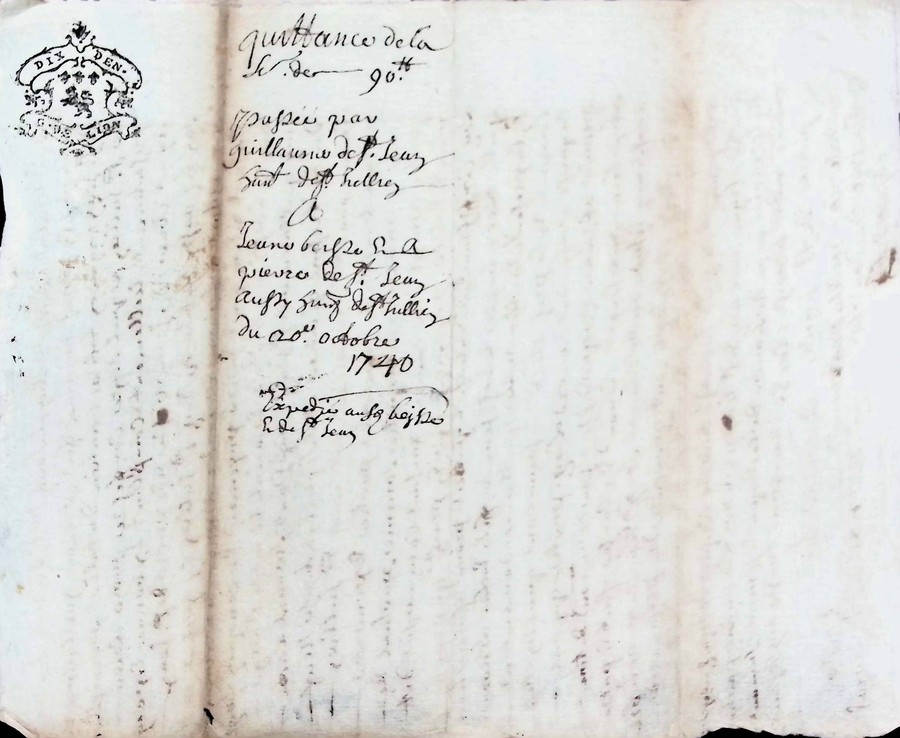 DIX DEN.
G. DE LION
quittance de la
So. de 90.tt
passée par
guillaume de St. Jean
hant de St Jullien
A
Jeanne beisse & A
pierre de St. Jean
Aussy hant de St Jullien
du 20.e octobre
1740
Expedié ausd beisse
& de St Jean